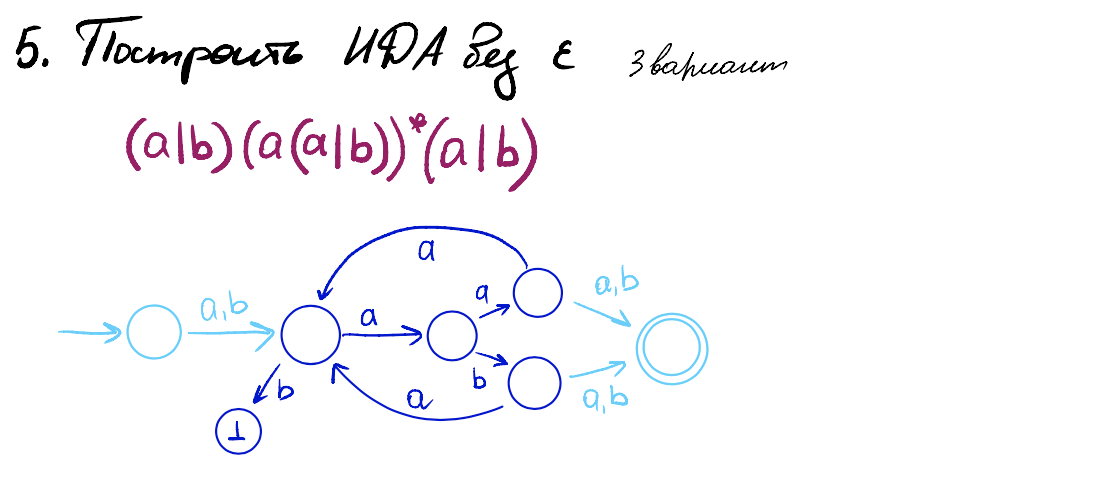 5. Построить НДА без ε 3 вариант
(a|b)(a(a|b))*(a|b)
a
a,b a a a,b
b b a a,b
⊥